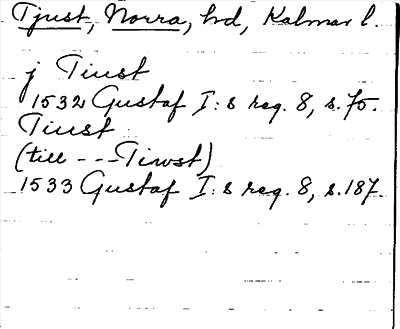 Tjust, Norra, hd, Kalmar l.
j Tiust
1532 Gustaf I:s reg. 8, s. 75.
Tiust
(till --- Tiwst)
1533 Gustaf I:s reg. 8, s. 187.